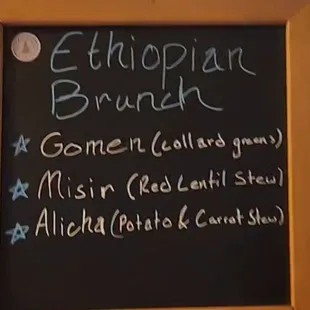 Ethiopian
Brunch
☆ Gomen (collard greens)
☆ Misir (Red Lentil Stew)
☆ Alicha (Potato & Carrot Stew)